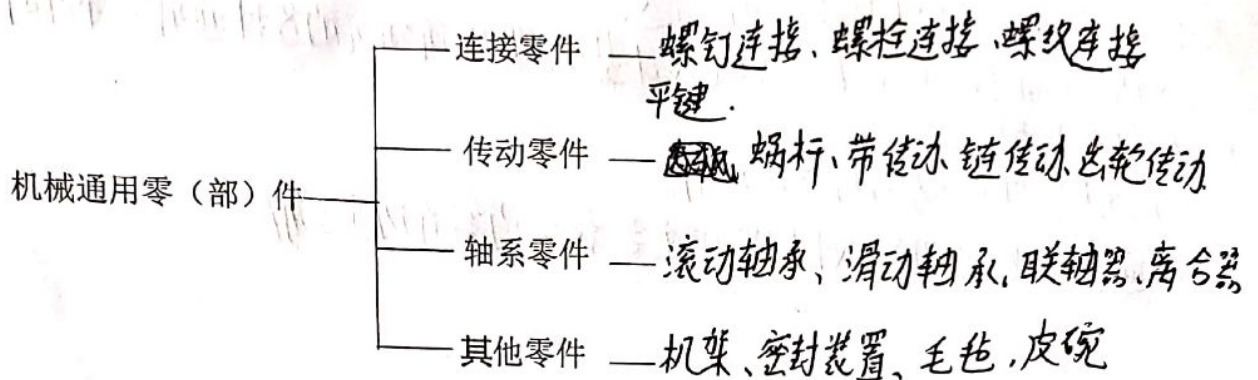 连接零件 螺钉连接、螺栓连接、螺纹连接
平键.
传动零件 蜗杆、带传动、链传动、齿轮传动
机械通用零（部）件
轴系零件 滚动轴承、滑动轴承、联轴器、离合器
其他零件 机架、密封装置、毛毡，皮碗